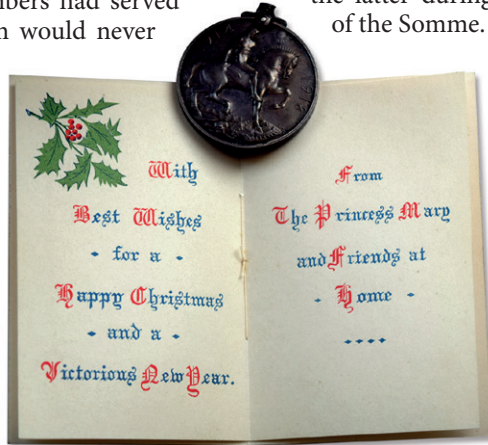 mbers had served
n would never
the latter during
of the Somme.
With
Best Wishes
· for a ·
Happy Christmas
· and a ·
Victorious New Year.
From
The Princess Mary
and Friends at
· Home ·